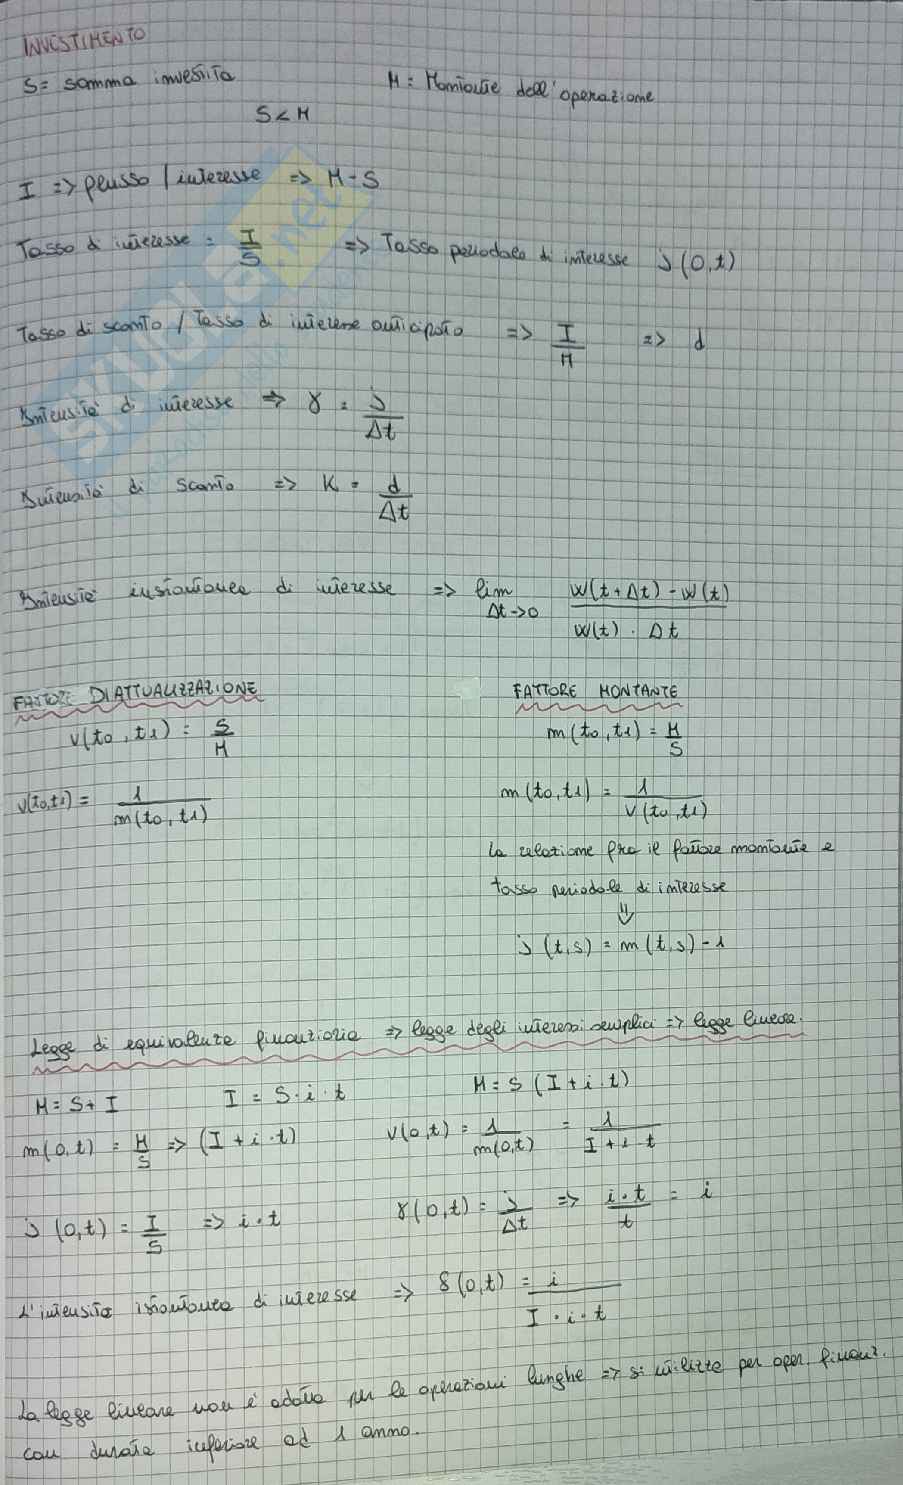 INVESTIMENTO
S = somma investita M = Montante dell'operazione
S < M
I => flusso / interesse => M - S
Tasso di interesse = I/S => Tasso periodale di interesse j(0,t)
Tasso di sconto / Tasso di interesse anticipato => I/M => d
Intensità di interesse => γ = j/Δt
Intensità di sconto => K = d/Δt
Intensità instantanea di interesse => lim Δt->0 W(t+Δt) - W(t) / W(t) · Δt
FATTORE DI ATTUALIZZAZIONE FATTORE MONTANTE
v(t0, t1) = S/M m(t0, t1) = M/S
v(t0,t1) = 1/m(t0, t1) m(t0, t1) = 1/v(t0, t1)
La relazione fra il fattore montante e
tasso periodale di interesse
⇓
j(t,s) = m(t,s) - 1
Legge di equivalenza finanziaria => legge degli interessi semplici => legge lineare.
M = S + I I = S · i · t M = S (I + i · t)
m(0,t) = M/S => (I + i · t) v(0,t) = 1/m(0,t) = 1/I + i · t
j(0,t) = I/S => i · t γ(0,t) = j/Δt => i · t/t = i
L'intensità istantanea di interesse => δ(0,t) = i/I · i · t
La legge lineare non è adatta per le operazioni lunghe => si utilizza per oper. finanz.
con durata inferiore ad 1 anno.
SKUOLA.net